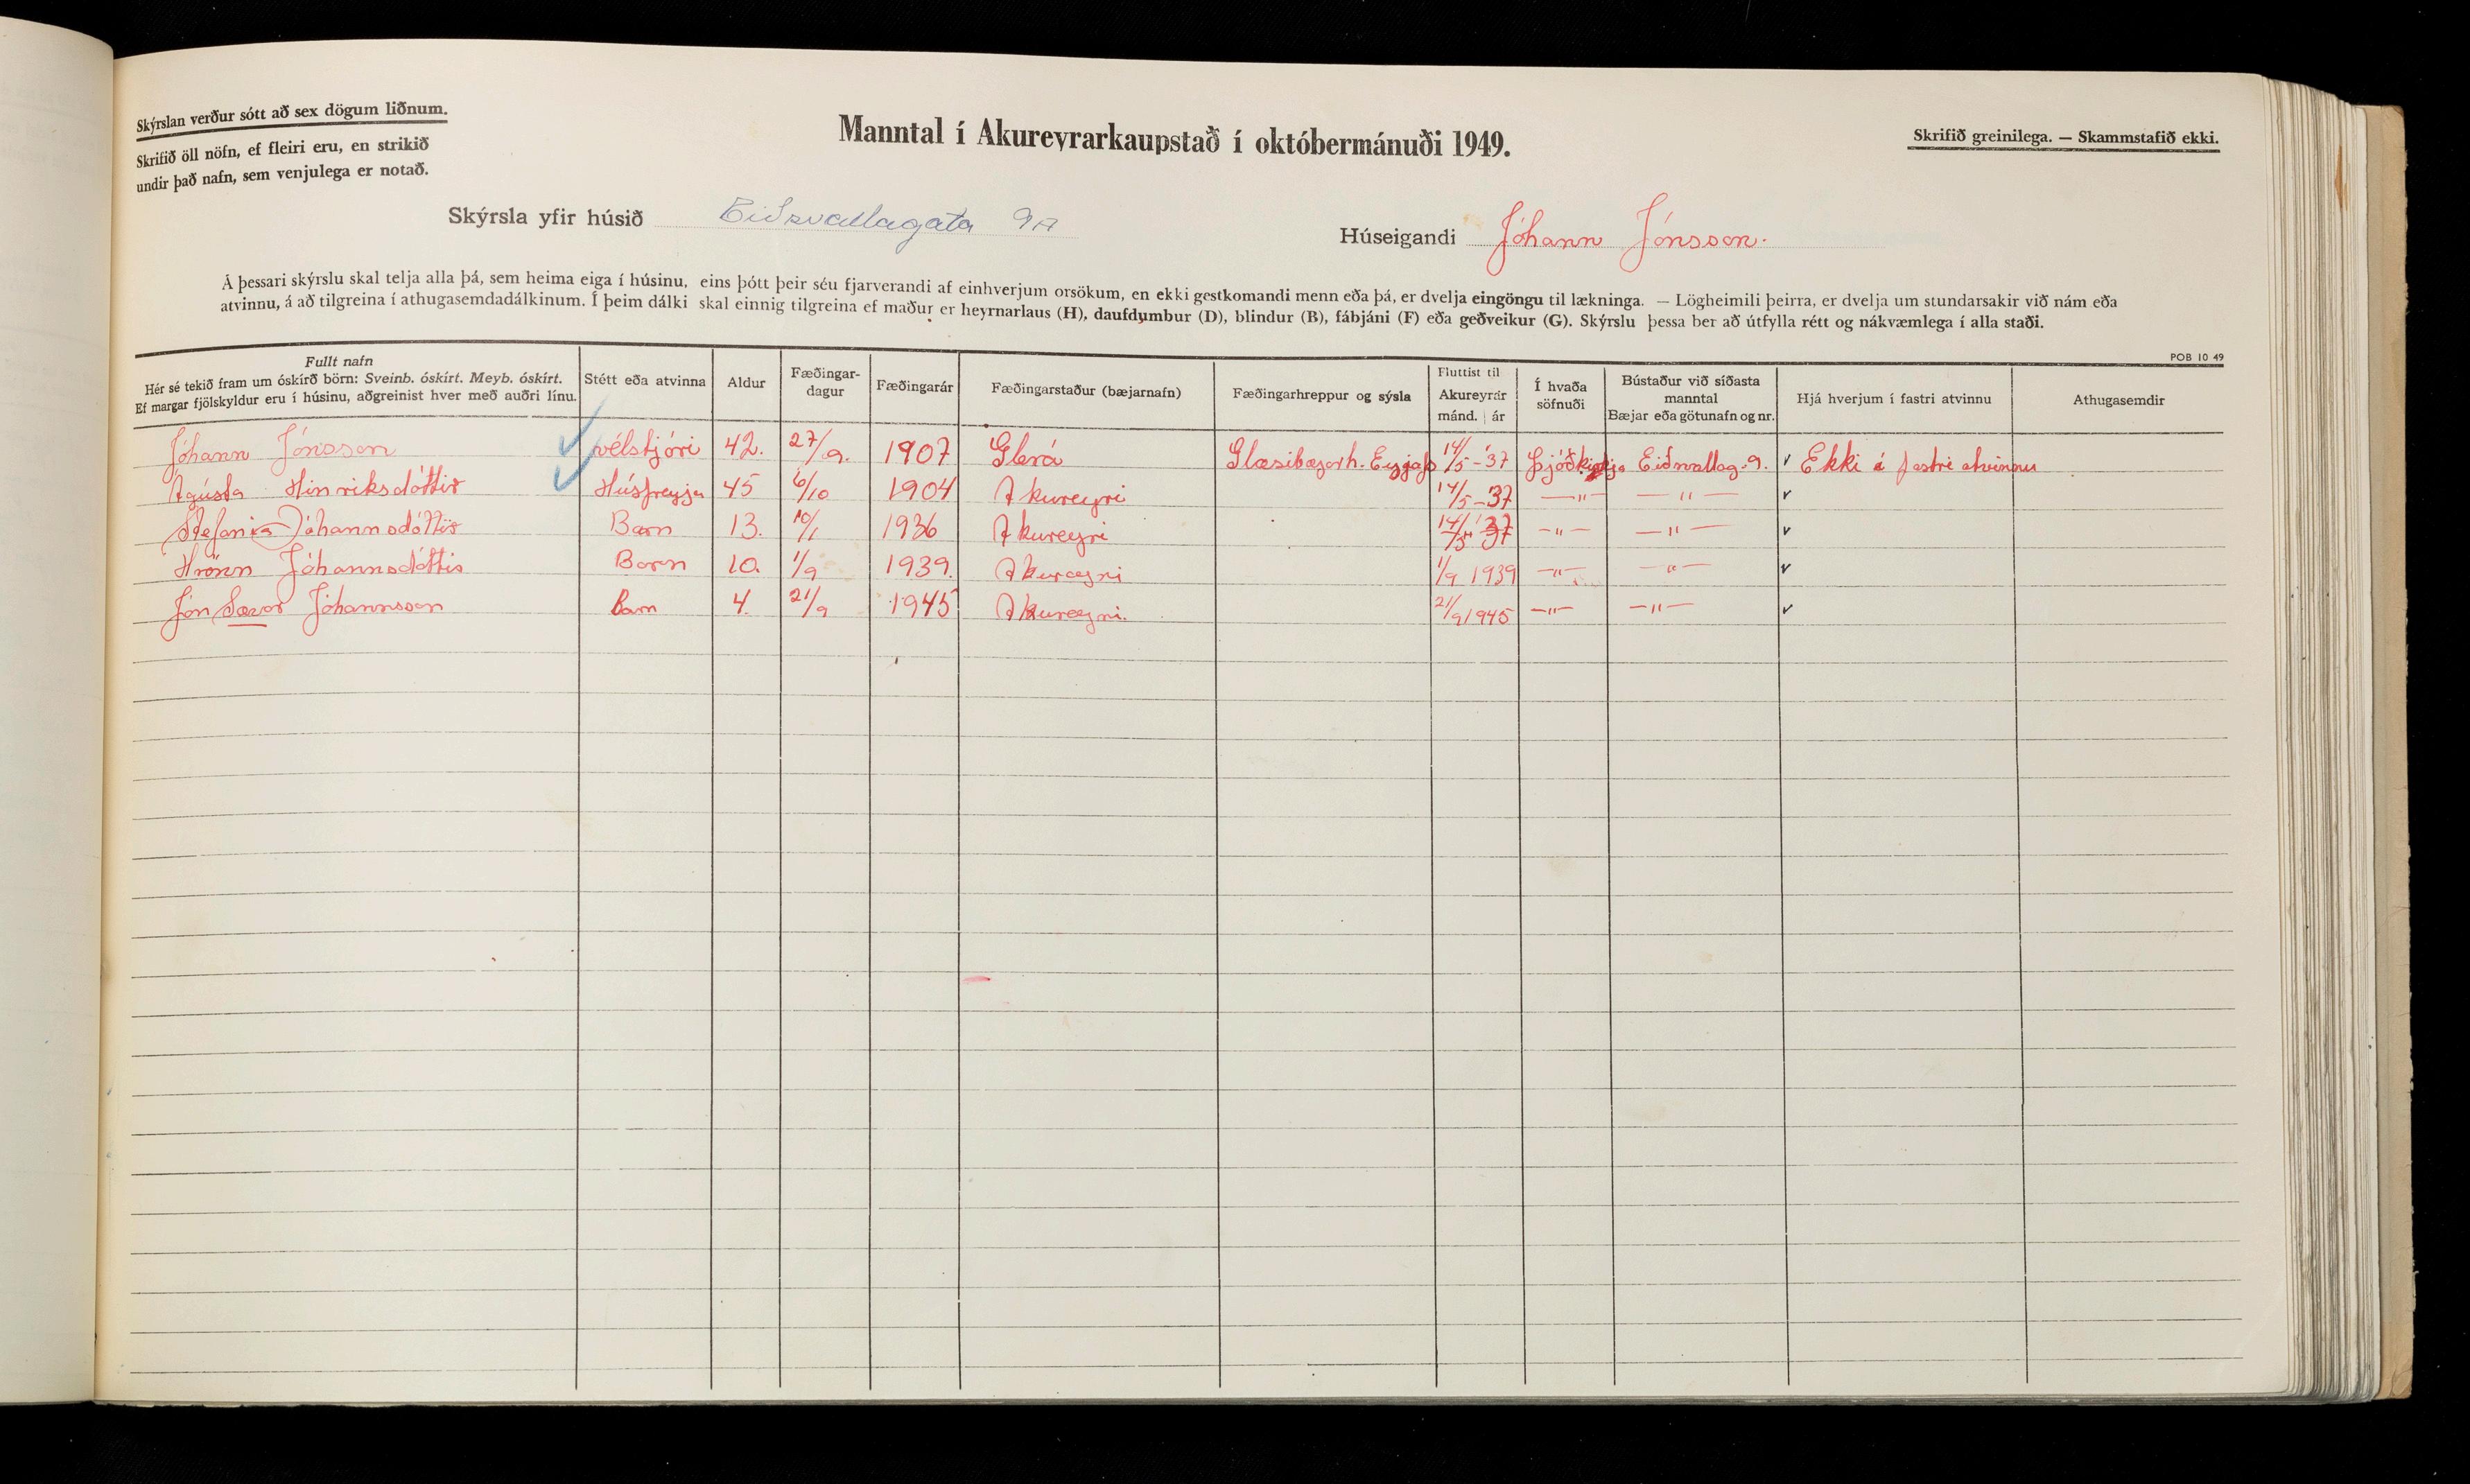 Skýrslan verður sótt að sex dögum liðnum.
Skrifið öll nöfn, ef fleiri eru, en strikið
undir það nafn, sem venjulega er notað.
Manntal í Akureyrarkaupstað í októbermánuði 1949.
Skrifið greinilega. — Skammstafið ekki.
Skýrsla yfir húsið Eiðsvallagata 9A
Húseigandi Jóhann Jónsson.
Á þessari skýrslu skal telja alla þá, sem heima eiga í húsinu, eins þótt þeir séu fjarverandi af einhverjum orsökum, en ekki gestkomandi menn eða þá, er dvelja eingöngu til lækninga. — Lögheimili þeirra, er dvelja um stundarsakir við nám eða
atvinnu, á að tilgreina í athugasemdadálkinum. Í þeim dálki skal einnig tilgreina ef maður er heyrnarlaus (H), daufdumbur (D), blindur (B), fábjáni (F) eða geðveikur (G). Skýrslu þessa ber að útfylla rétt og nákvæmlega í alla staði.
POB 10 49
Fullt nafn
Hér sé tekið fram um óskírð börn: Sveinb. óskírt. Meyb. óskírt.
Ef margar fjölskyldur eru í húsinu, aðgreinist hver með auðri línu.
Stétt eða atvinna
Aldur
Fæðingar-
dagur
Fæðingarár
Fæðingarstaður (bæjarnafn)
Fæðingarhreppur og sýsla
Fluttist til
Akureyrar
mánd. ár
Í hvaða
söfnuði
Bústaður við síðasta
manntal
Bæjar eða götunafn og nr.
Hjá hverjum í fastri atvinnu
Athugasemdir
Jóhann Jónsson vélstjóri 42. 27/9. 1907 Glerá Glæsibæjarh. Eyjafs 14/5-'37 Þjóðkirkja Eiðsvallag. 9. Ekki á fastri atvinnu
Ágústa Hinriksdóttir Húsfreyja 45 6/10 1904 Akureyri 14/5-37 —"— —"—
Stefanía Jóhannsdóttir Barn 13. 10/1 1936 Akureyri 14/5 37 —"— —"—
Hrönn Jóhannsdóttir Barn 10. 1/9 1939. Akureyri 1/9 1939 —"— —"—
Jón Sævar Jóhannsson Barn 4. 21/9 1945 Akureyri. 21/9 1945 —"— —"—